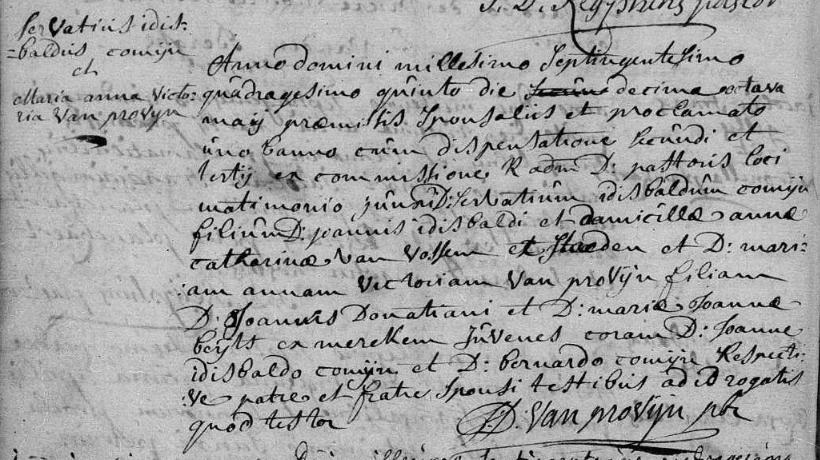 Servatius idis:
=baldus comijn
et
Maria anna Victo:
ria Van provijn
Anno domini millesimo Septingentesimo
quadragesimo quinto die decima octava
maij præmissis Sponsaliis et proclamato
uno banno cum dispensatione secundi et
tertij ex commissione R adm D: pastoris loci
matrimonio junxi D: Servatium idisbaldum comijn
filium D: joannis idisbaldi et damicellæ annæ
catharinæ Van Vossem ex Staeden et D: mari:
am annam Victoriam Van provijn filiam
D: Joannis Donatiani et D: mariæ Joannæ
beijts ex merckem Juvenes coram D: Joanne
idisbaldo comijn et D: bernardo comijn Respecti:
Ve patre et fratre Sponsi testibus ad id rogatis
quod testor
D: Van provijn pbr